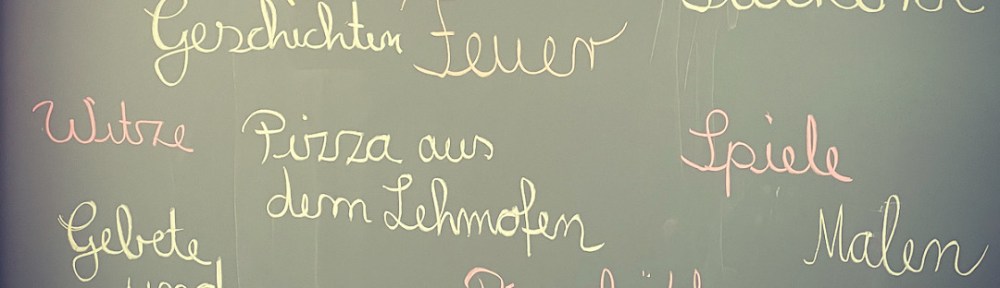 Geschichten Feuer
Witze
Pizza aus
dem Lehmofen
Spiele
Gebete
und
Malen